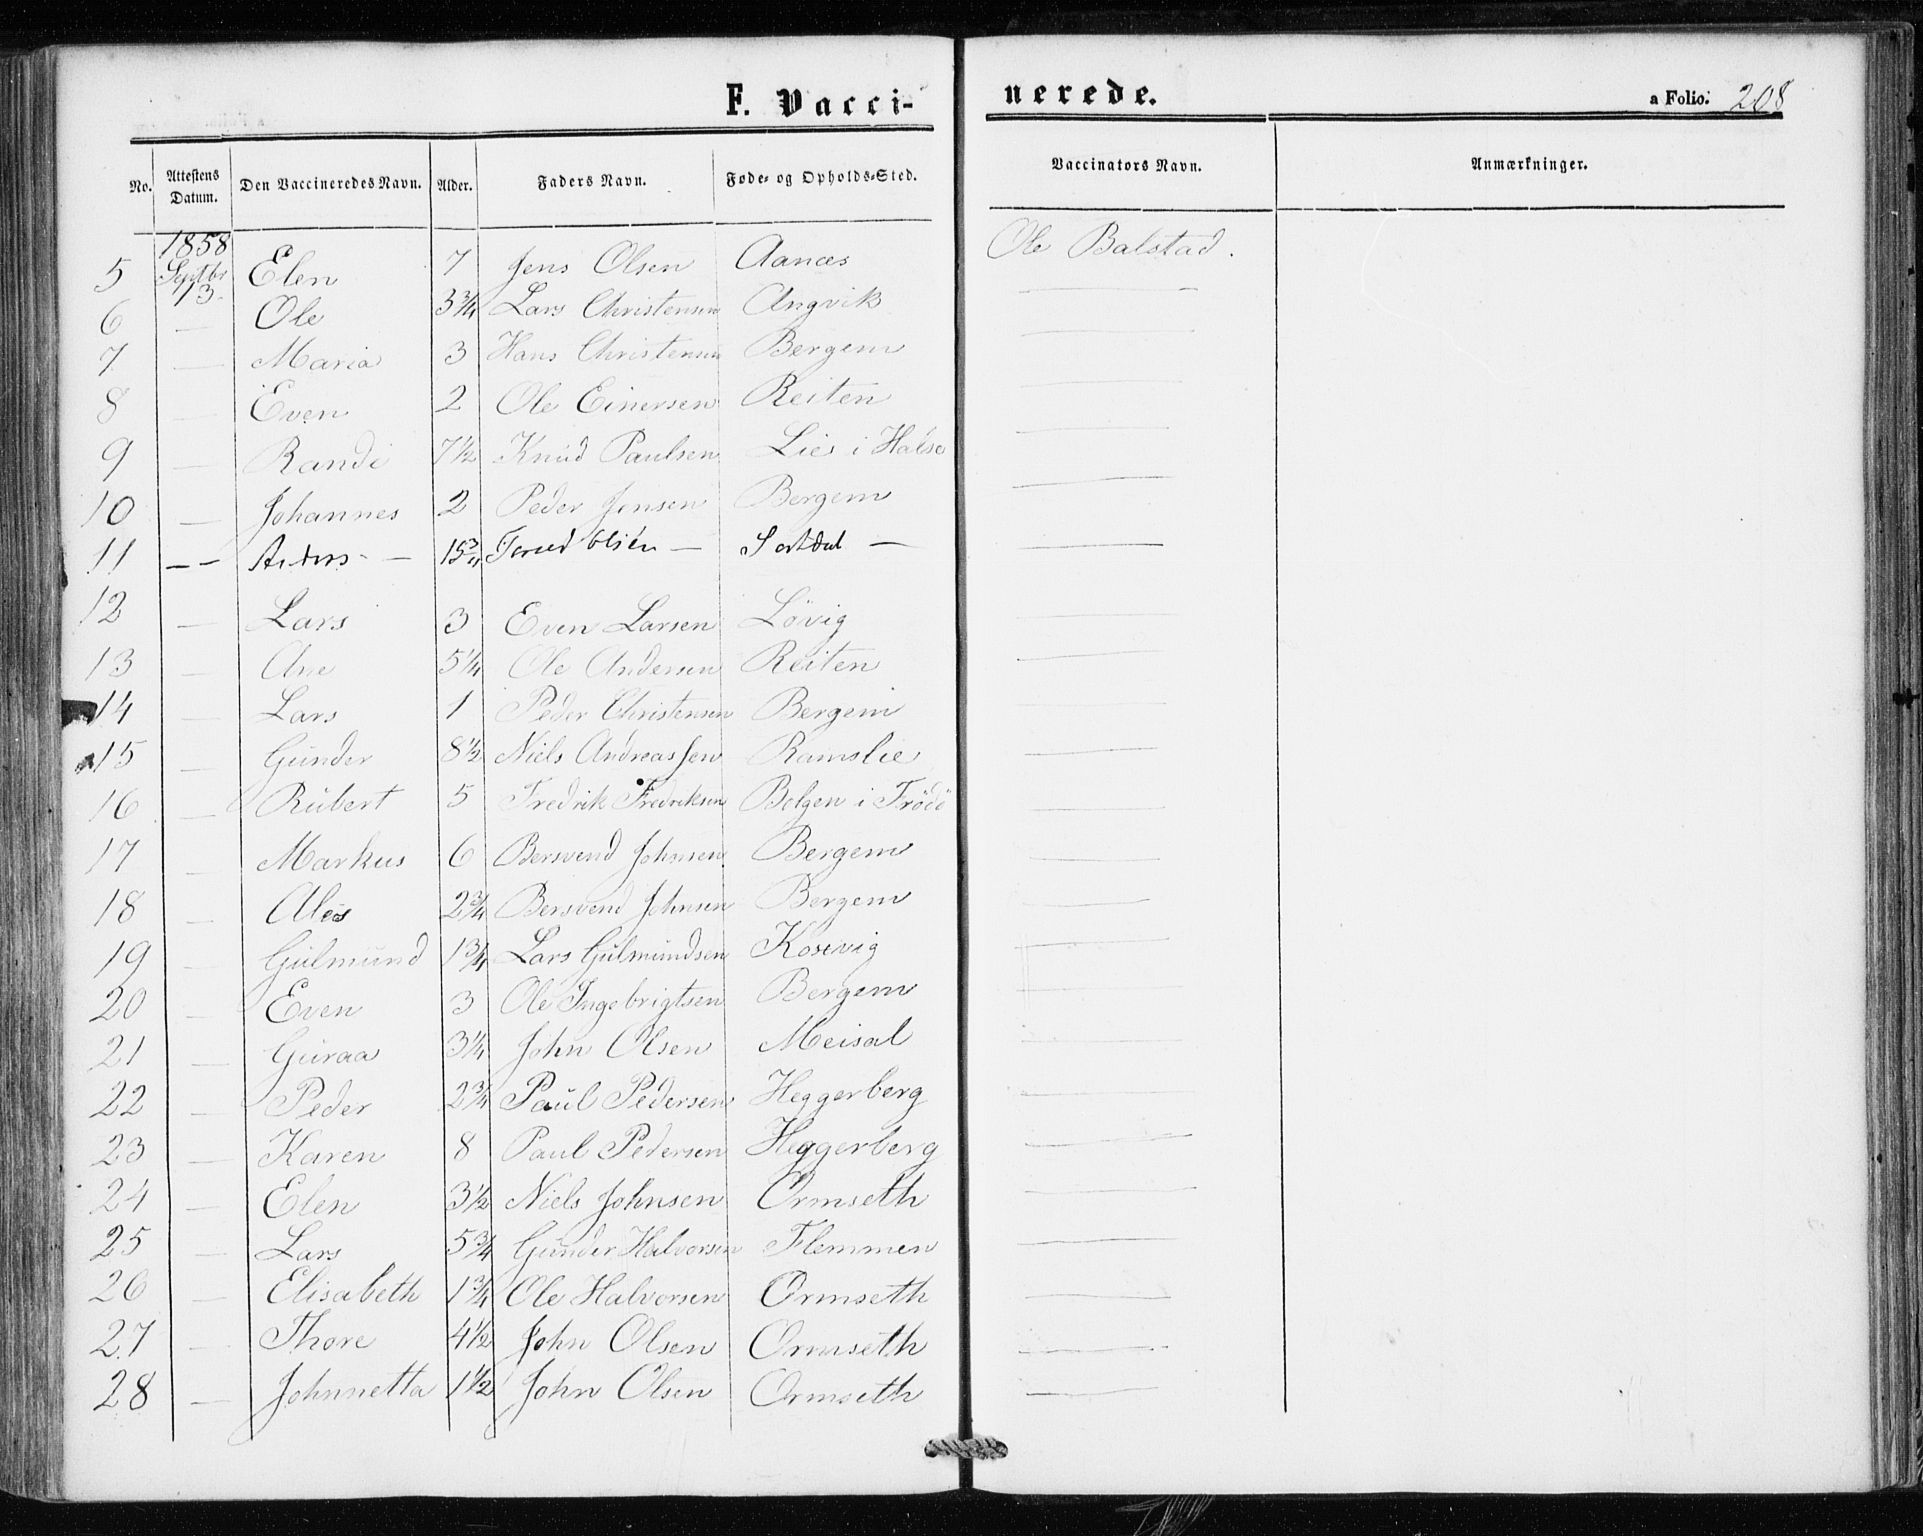 F. Vacci-nerede.
a Folio. 208
No. | Attestens Datum. | Den Vaccineredes Navn. | Alder. | Faders Navn. | Føde- og Opholds-Sted. | Vaccinators Navn. | Anmærkninger.
5 | 1858 Septbr 13. | Elen | 7 | Jens Olsen | Aanæs | Ole Balstad.
6 | — | Ole | 3 3/4 | Lars Christensen | Angvik | —
7 | — | Maria | 3 | Hans Christensen | Bergem | —
8 | — | Even | 2 | Ole Einersen | Reiten | —
9 | — | Randi | 7 1/2 | Knud Paulsen | Lies i Halse | —
10 | — | Johannes | 2 | Peder Jensen | Bergem | —
11 | — — | Anders — | 15 3/4 | Olsen — | —
12 | — | Lars | 3 | Even Larsen | Løvig | —
13 | — | Ane | 5 1/4 | Ole Andersen | Reiten | —
14 | — | Lars | 1 | Peder Christensen | Bergem | —
15 | — | Gunder | 8 1/2 | Niels Andreassen | Ramslie | —
16 | — | Rubert | 5 | Fredrik Fredriksen | Bolgen i Frödö | —
17 | — | Markus | 6 | Bersvend Johnsen | Bergem | —
18 | — | 2 3/4 | Bersvend Johnsen | Bergem | —
19 | — | Gulmund | 1 3/4 | Lars Gulmundsen | Kosvig | —
20 | — | Even | 3 | Ole Ingebrigtsen | Bergem | —
21 | — | Guraa | 3 1/4 | John Olsen | Meisal | —
22 | — | Peder | 2 3/4 | Paul Pedersen | Heggerberg | —
23 | — | Karen | 8 | Paul Pedersen | Heggerberg | —
24 | — | Elen | 3 1/2 | Niels Johnsen | Ormseth | —
25 | — | Lars | 5 3/4 | Gunder Halvorsen | Flemmen | —
26 | — | Elisabeth | 1 3/4 | Ole Halvorsen | Ormseth | —
27 | — | Thore | 4 1/2 | John Olsen | Ormseth | —
28 | — | Johnnetta | 1 1/2 | John Olsen | Ormseth | —